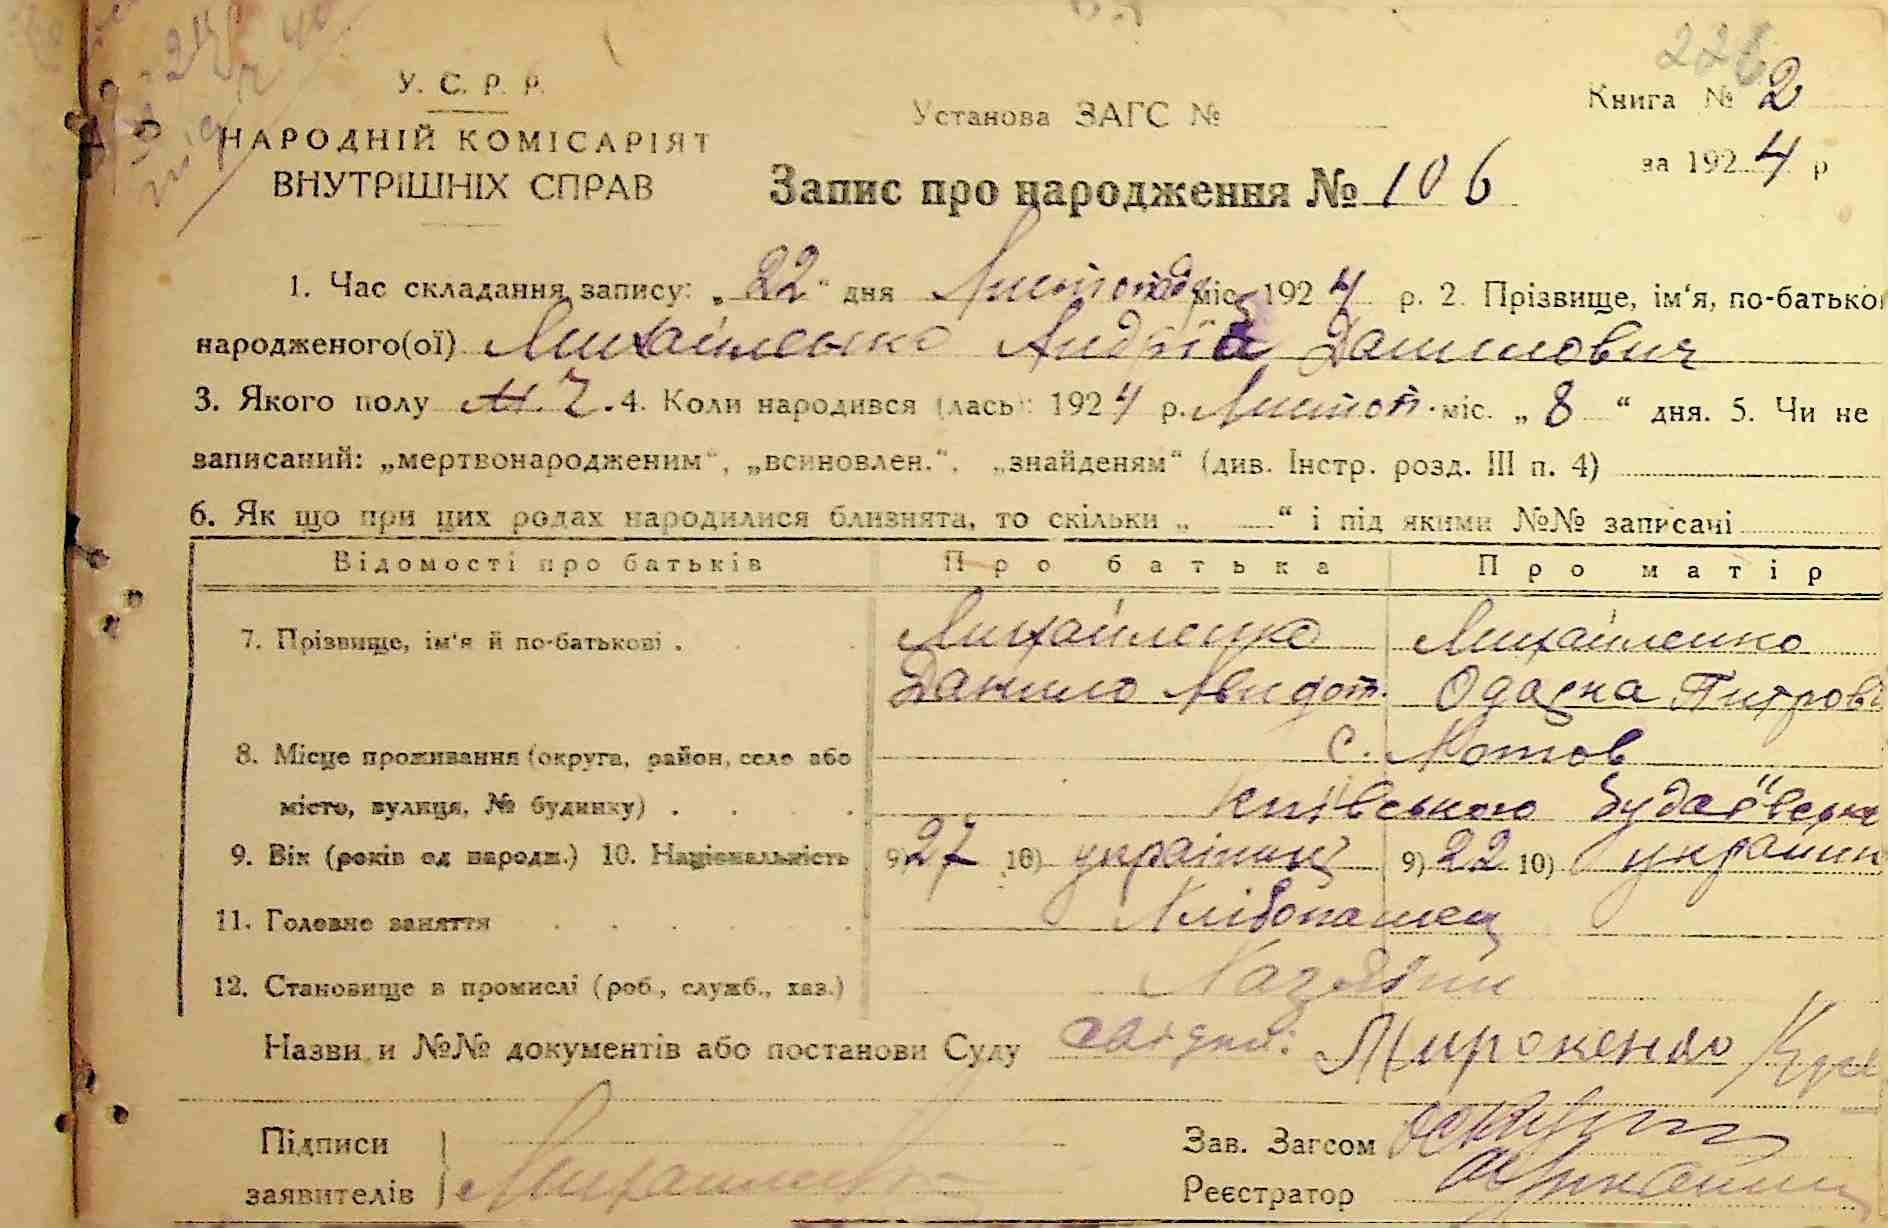 226
У. С. Р. Р.
НАРОДНІЙ КОМІСАРІЯТ
ВНУТРІШНІХ СПРАВ
Установа ЗАГС №
Книга № 2
за 1924 р
Запис про народження № 106
1. Час складання запису: „22“ дня Листопад міс. 1924 р. 2. Прізвище, ім‘я, по-батькові
народженого(ої) Михайленко Андрій Данилович
3. Якого полу М. Ч. 4. Коли народився (лась): 1924 р. Листоп. міс. „8“ дня. 5. Чи не
записаний: „мертвонародженим“, „всиновлен.“, „знайденям“ (див. Інстр. розд. III п. 4)
6. Як що при цих родах народилися близнята, то скільки „ — “ і під якими №№ записані
Відомості про батьків Про батька Про матір
7. Прізвище, ім‘я й по-батькові . Михайленко Михайленко
Данило Петрові
8. Місце проживання (округа, район, село або с.
місто, вулиця, № будинку) . . . . Київською
9. Вік (років од народж.) 10. Національність 9) 27 10) українец 9) 22 10) украин
11. Головне заняття Хлібопашец
12. Становище в промислі (роб., служб., хаз.) Хазяїни
Назви и №№ документів або постанови Суду
Підписи
заявителів Михайленко
Зав. Загсом
Реєстратор